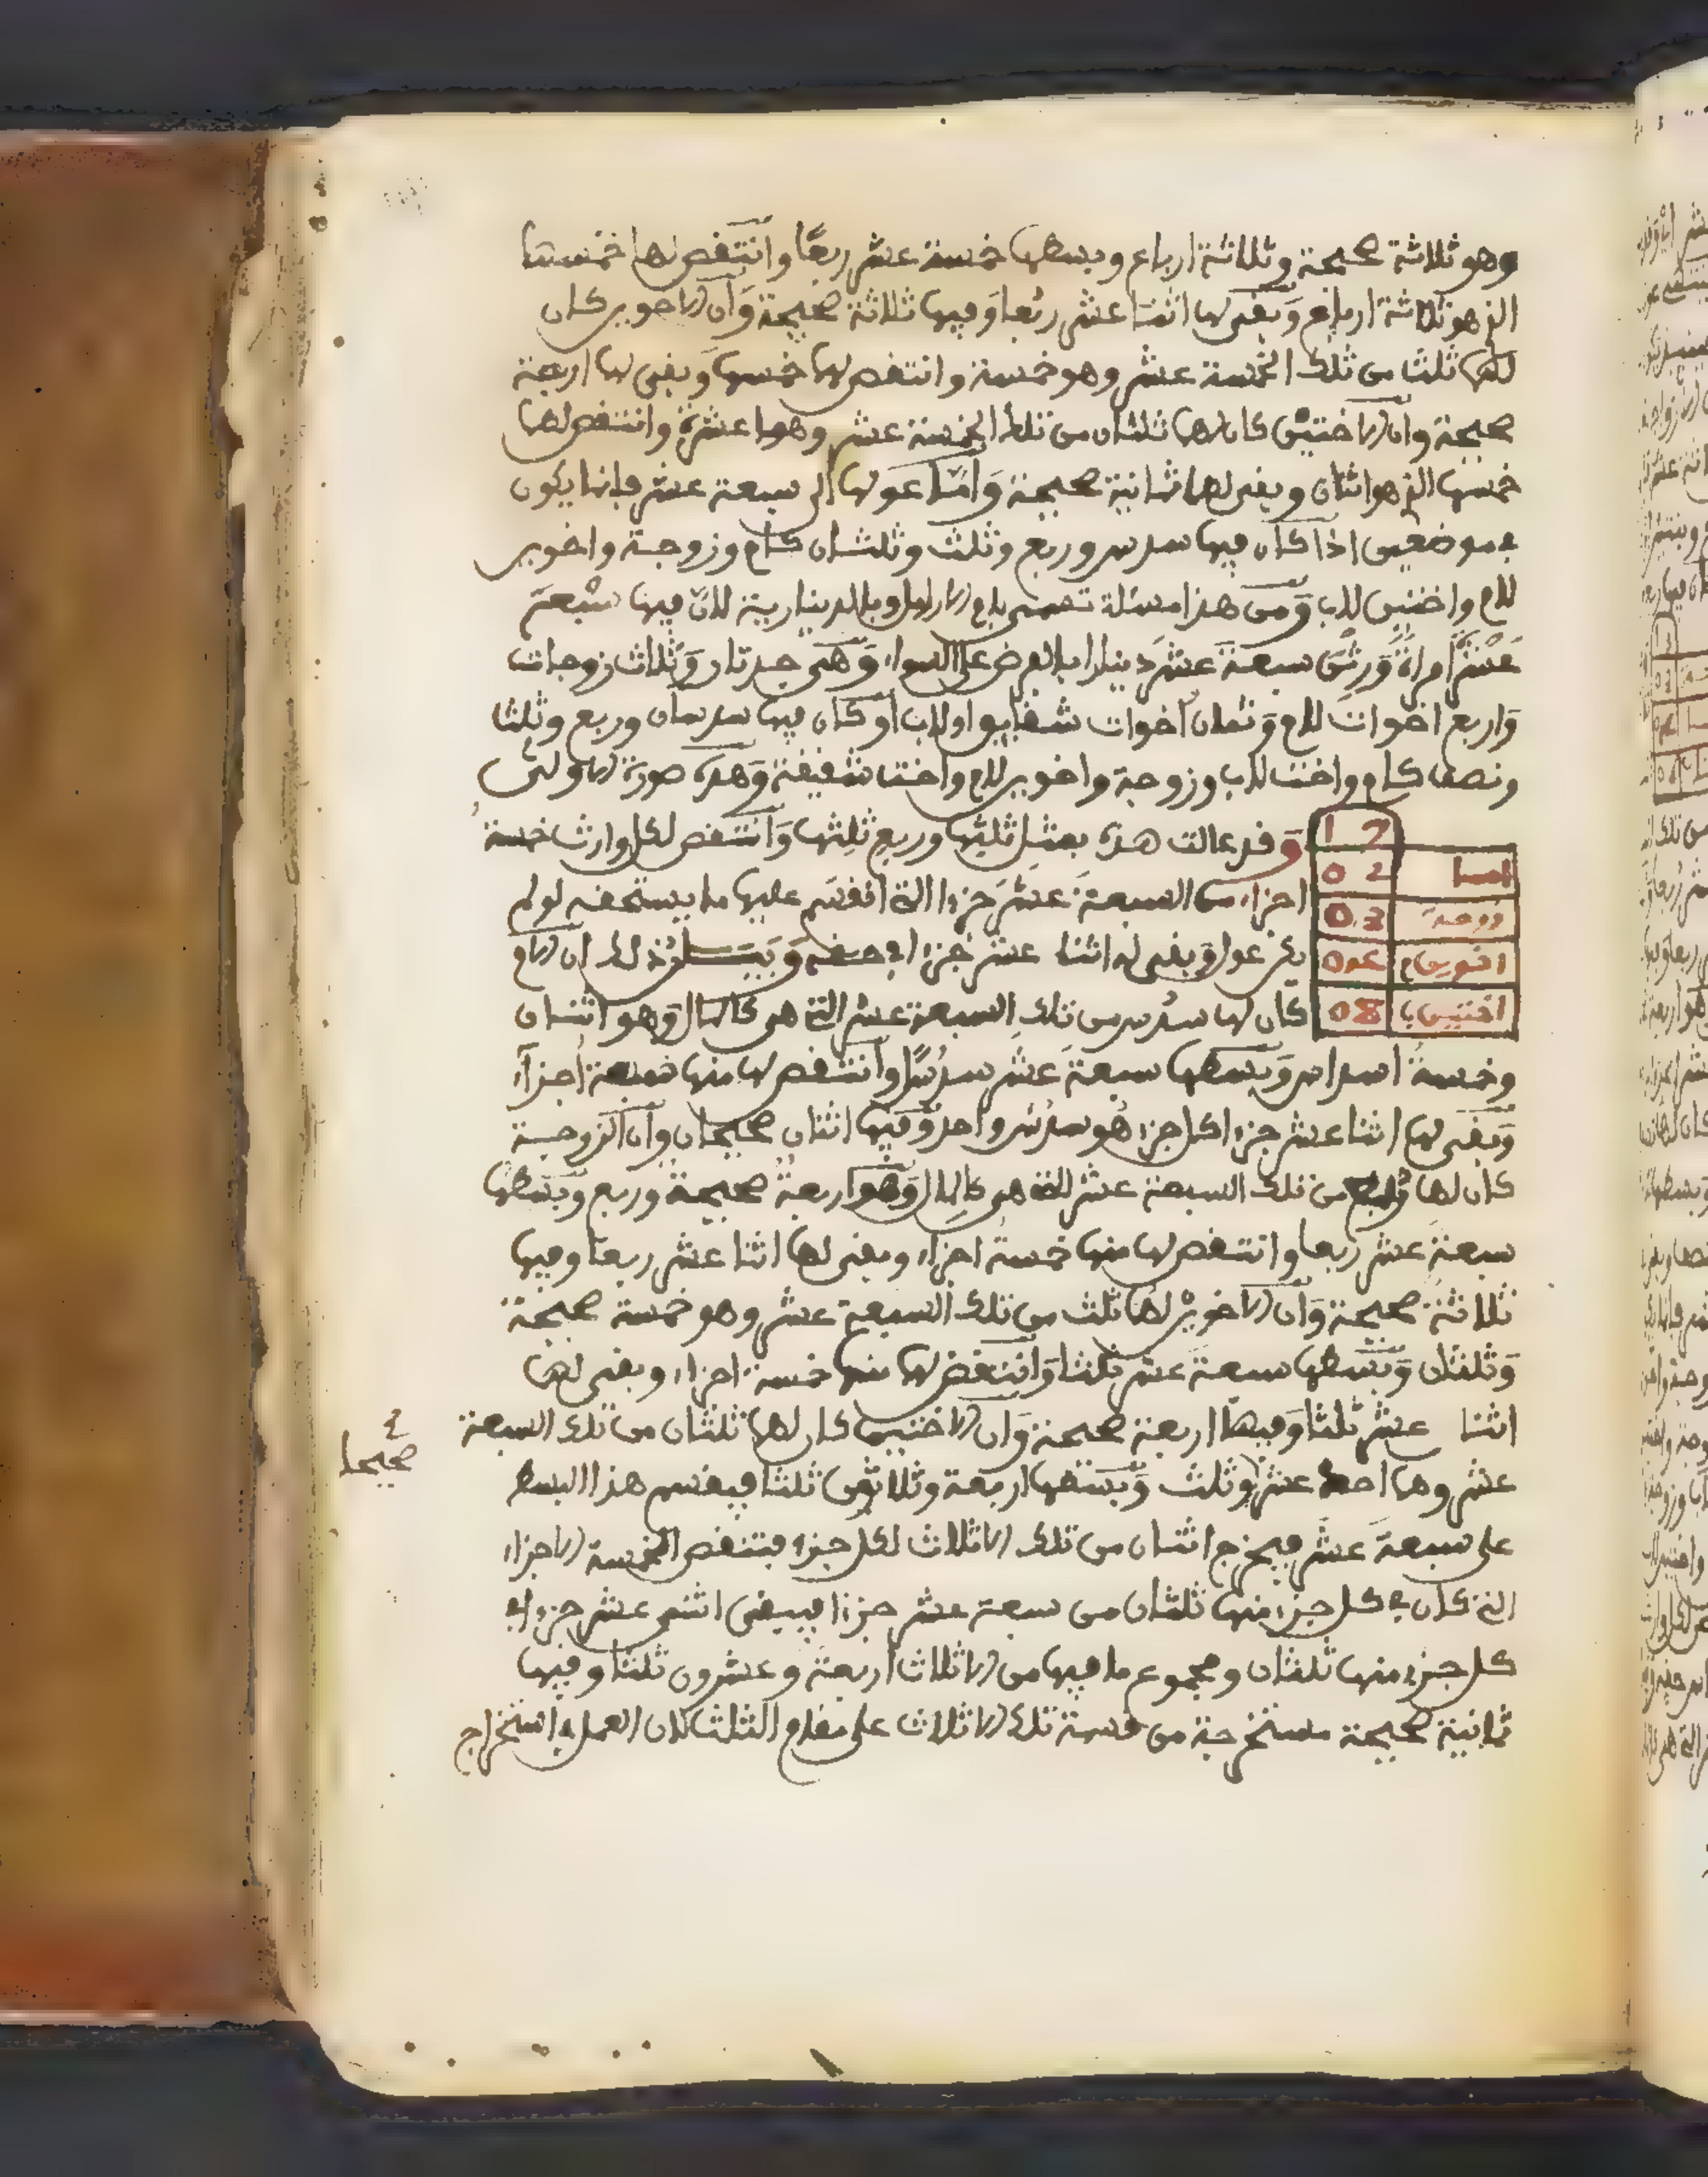 وهو ثلاثة صحيحة وثلاثة ارباع وبسطها خمسة عشر ربعًا وانتقص لها خمسها
الذي هو ثلاثة ارباع وَبقي لها اثنا عشر ربُعا وَفيها ثلاثة صحيحة وَان الاخوين كان
لهما ثلث من تلك الخمسة عشر وهو خمسة وانتقص لهما خمسها وَبقي لها اربعة
صحيحة وان الاختين كان لهما ثلثان من تلك الخمسة عشر وهو عشرة وانتقص لهما
خمسها الذي هو اثنان وبقي لهما ثمانية صحيحة وَامَّا عولها الى سبعة عشر فإنما يكون
في موضعين اذا كان فيها سدس وربع وثلث وثلثان كام وزوجة واخوين
للام واختين للاب وَمن هذا مسئلة تسمى بام الارامل وبالدينارية لانّ فيها سَبْعَةَ
عَشْرَ امراةً وَرِثْنَ سبعةَ عشَر دينارا بالفرض على السواء وَهي جدتان وَثلاث زوجات
وَاربع اخوات للام وَثمان اخوات شقايق او للاب اَو كان فيها سدسان وربع وثلث
ونصف كام واخت للاب وزوجة واخوين للام واخت شقيقة وَهذه صورة الاولى
وَقد عالت هذه بمثل ثلثيها وربعِ ثلثها وَانتقص لكل وارث خمسة
اجزاء من السبعةَ عشَر جزءا التي انقسم عليها ما يستحقه لو لم
يكن عول وبقي له اثنا عشر جزءا في حقه وَبَيَــانُ ذلك ان الام
كان لها سدُس من تلك السبعة عشر التي هي كالمال وَهو اثنان
12
امـا 02
زوجة 03
اخوين م 04
اختين ب 08
وخمسةُ اسداس وَبسطها سبعةَ عَشَر سدسًا وانتقص لها منها خمسة اجزاء
وَبقي لها اثنا عشر جزءا كل جزء هُو سدُس واحد وَفيها اثنان صحيحان وَان الزوجة
كان لها رُبع من تلك السبعة عشر التي هي كالمال وَهو اربعةُ صحيحة وربع وَبسطها
سبعةَ عشَر ربعا وانتقص لها منها خمسةُ اجزاء وبقي لها اثنا عشر ربعًا وفيها
ثلاثة صحيحة وَان الاخوين لهما ثلث من تلك السبعة عشر وهو خمسة صحيحة
وَثلثان وَبسطها سبعةَ عشر ثلثا وَانتقص لهما منها خمسة اجزاء وبقي لهما
اثنا عشر ثلثا وَفيها اربعة صحيحة وَان الاختين كان لهما ثلثان من تلك السبعة
صحيحا
عشر وهما احد عشر وثلث وَبسطها اربعة وثلاثون ثلثا فيقسم هذا البسط
على سبعةَ عشَر فيخرج اثنان من تلك الاثلاث لكل جزء فتنقص الخمسة الاجزاء
التي كان في كل جزء منها ثلثان من سبعة عشر جزءا فيبقى اثني عشر جزءا في
كل جزء منها ثلثان ومجموع ما فيها من الاثلاث اربعة وعشرون ثلثا وفيها
ثمانية صحيحة مستخرجة من قسمة تلك الاثلاث على مقام الثلث لان العمل في استخراج